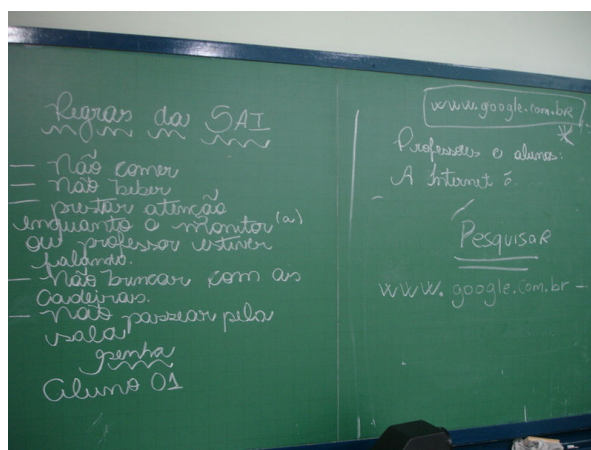 Regras da SAI
— Não comer
— Não beber
— prestar atenção
enquanto o monitor (a)
ou professor estiver
falando.
— Não brincar com as
cadeiras.
— Não passear pela
sala
senha
Aluno 01
www.google.com.br
Professores e alunos:
A Internet é
Pesquisar
www.google.com.br –